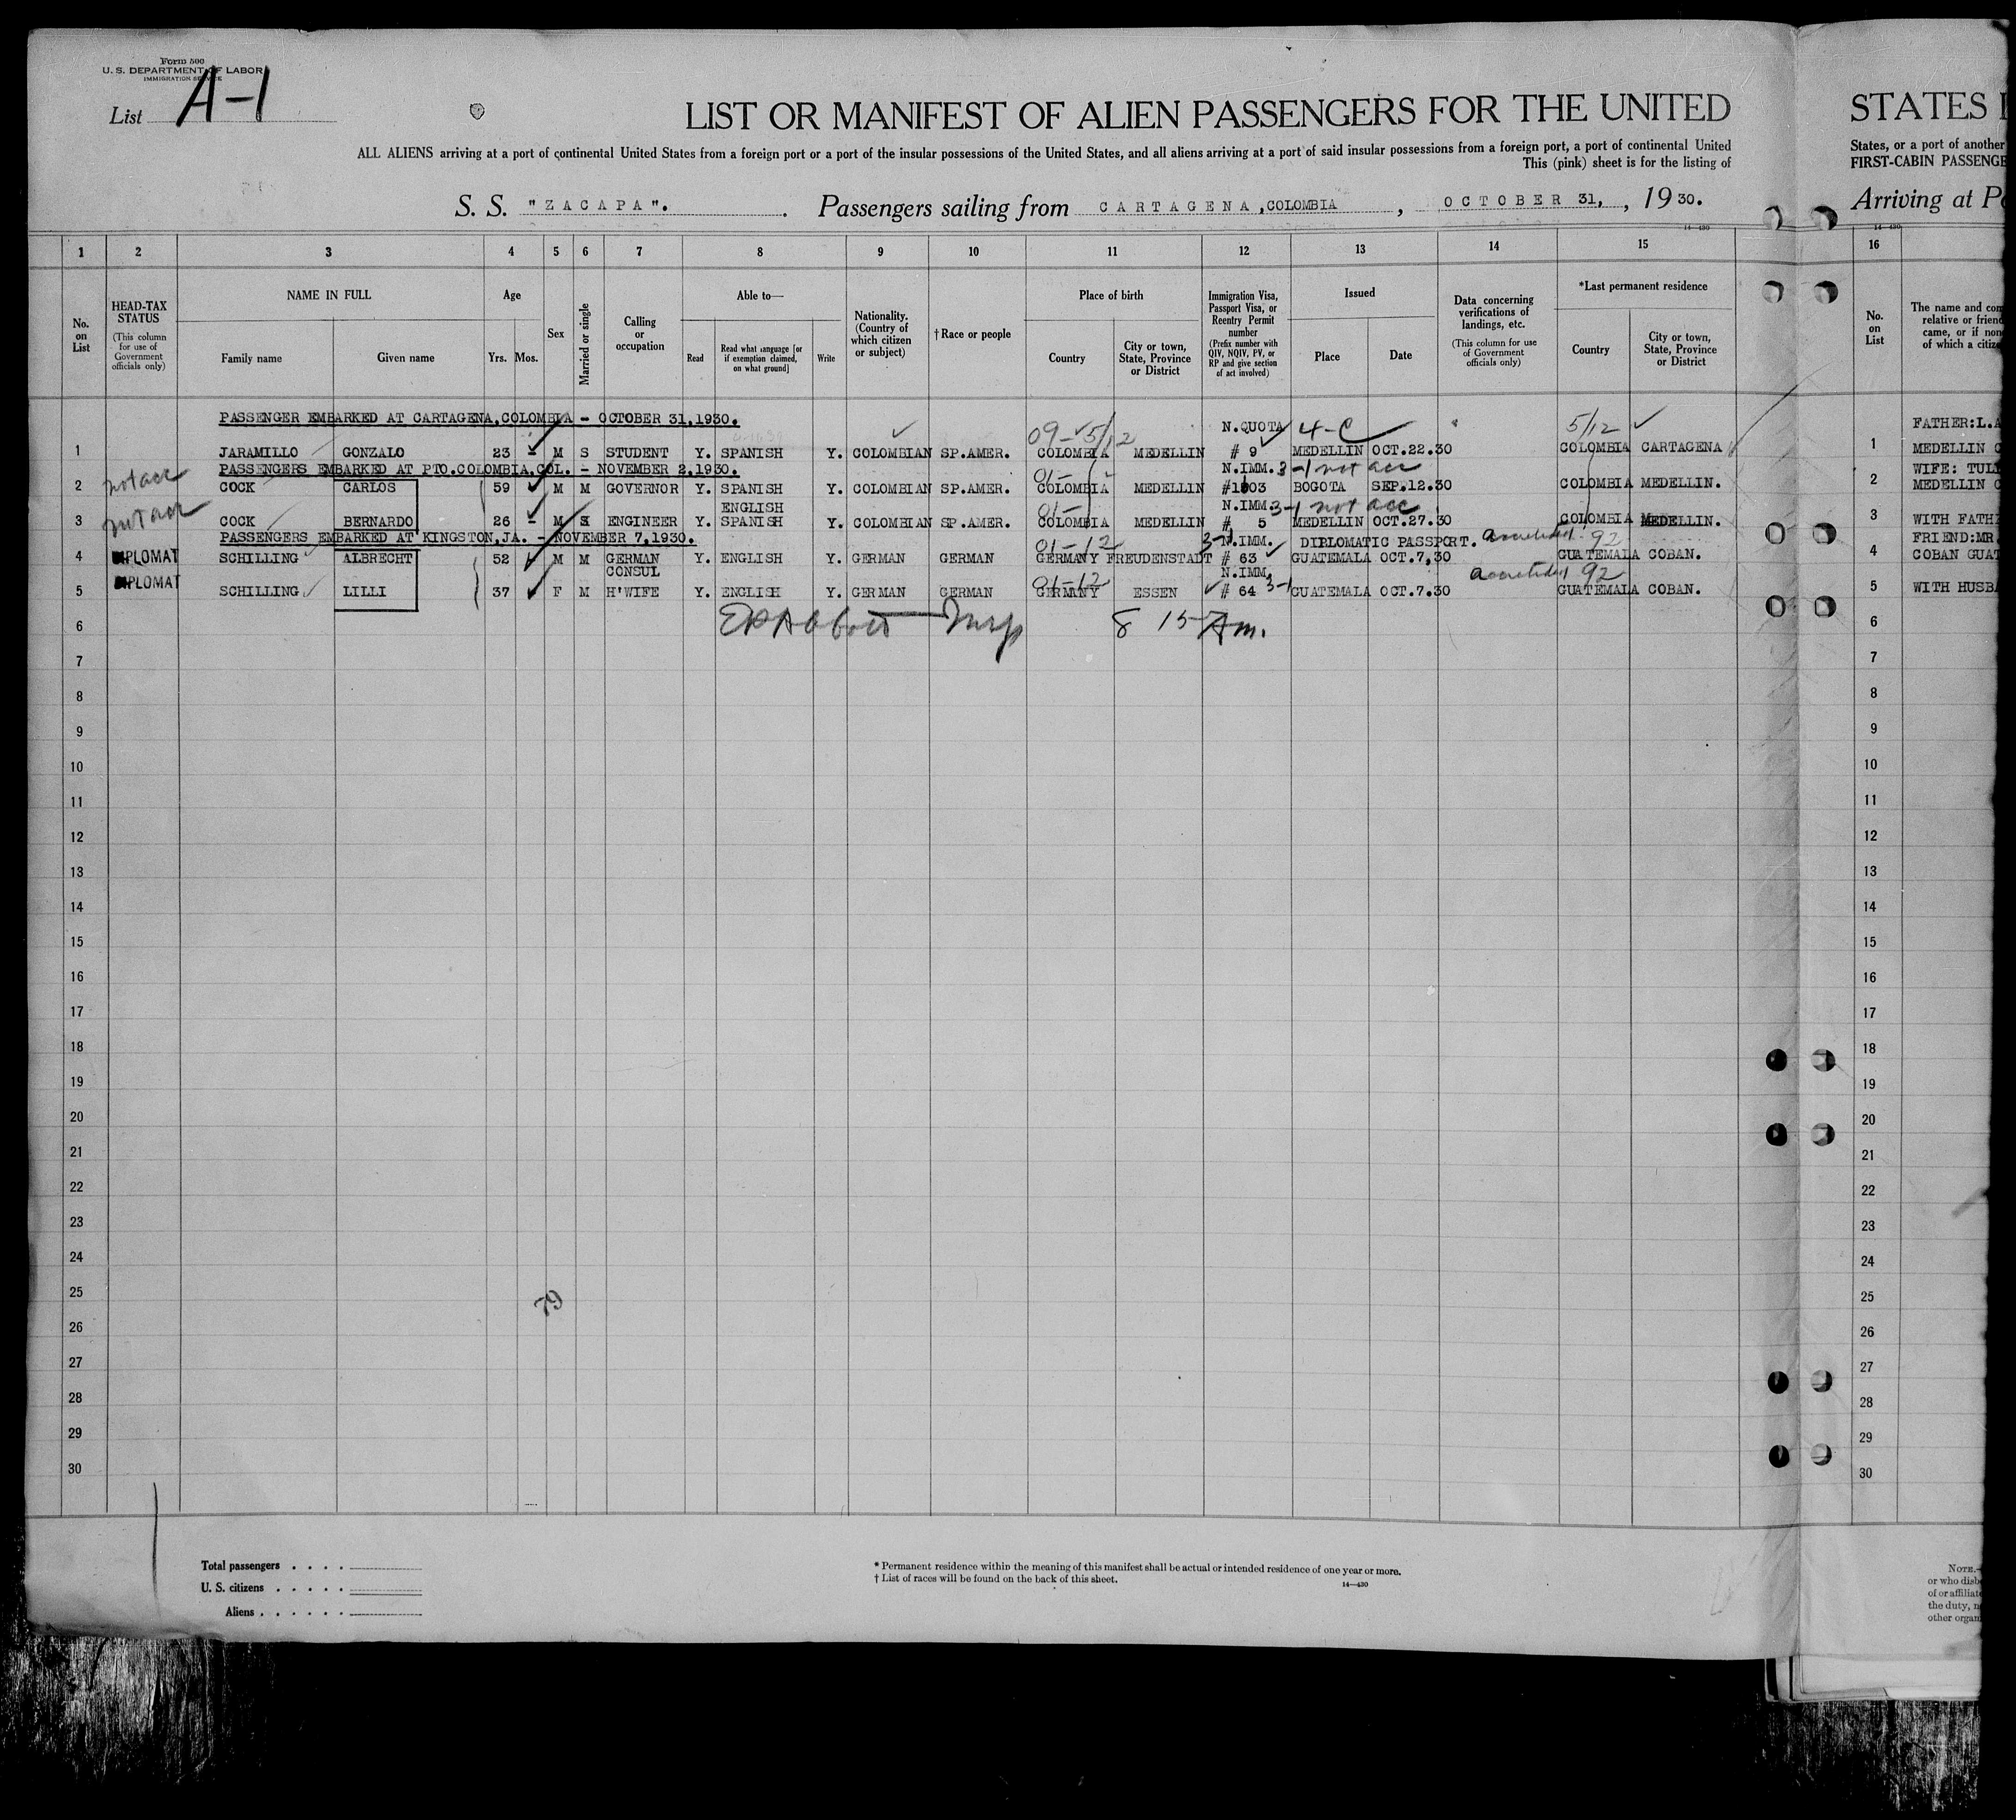 Form 500
U. S. DEPARTMENT OF LABOR
IMMIGRATION SERVICE
List A-1
LIST OR MANIFEST OF ALIEN PASSENGERS FOR THE UNITED
ALL ALIENS arriving at a port of continental United States from a foreign port or a port of the insular possessions of the United States, and all aliens arriving at a port of said insular possessions from a foreign port, a port of continental United
This (pink) sheet is for the listing of
S. S. "ZACAPA". Passengers sailing from CARTAGENA, COLOMBIA, OCTOBER 31, 1930.
14-430
1 2 3 4 5 6 7 8 9 10 11 12 13 14 15
No. on List
HEAD-TAX STATUS (This column for use of Government officials only)
NAME IN FULL
Family name Given name
Age
Yrs. Mos.
Sex
Married or single
Calling or occupation
Able to—
Read
Read what language [or if exemption claimed, on what ground]
Write
Nationality. (Country of which citizen or subject)
† Race or people
Place of birth
Country
City or town, State, Province or District
Immigration Visa, Passport Visa, or Reentry Permit number (Prefix number with QIV, NQIV, PV, or RP and give section of act involved)
Issued
Place Date
Data concerning verifications of landings, etc. (This column for use of Government officials only)
*Last permanent residence
Country
City or town, State, Province or District
PASSENGER EMBARKED AT CARTAGENA, COLOMBIA - OCTOBER 31, 1930.
09-5/12 N.QUOTA 4-C 5/12
1 JARAMILLO GONZALO 23 M S STUDENT Y. SPANISH Y. COLOMBIAN SP.AMER. COLOMBIA MEDELLIN # 9 MEDELLIN OCT.22.30 COLOMBIA CARTAGENA
PASSENGERS EMBARKED AT PTO.COLOMBIA, COL. - NOVEMBER 2, 1930.
01- N.IMM. 3-1 not acc
2 not acc COCK CARLOS 59 M M GOVERNOR Y. SPANISH Y. COLOMBIAN SP.AMER. COLOMBIA MEDELLIN #1803 BOGOTA SEP.12.30 COLOMBIA MEDELLIN.
ENGLISH 01- N.IMM. 3-1 not acc
3 not acc COCK BERNARDO 26 M S ENGINEER Y. SPANISH Y. COLOMBIAN SP.AMER. COLOMBIA MEDELLIN # 5 MEDELLIN OCT.27.30 COLOMBIA MEDELLIN.
PASSENGERS EMBARKED AT KINGSTON, JA. - NOVEMBER 7, 1930.
01-12 3-1 N.IMM. DIPLOMATIC PASSPORT. 92
4 DIPLOMAT SCHILLING ALBRECHT 52 M M GERMAN CONSUL Y. ENGLISH Y. GERMAN GERMAN GERMANY FREUDENSTADT # 63 GUATEMALA OCT.7,30 GUATEMALA COBAN.
01-12 N.IMM. 3-1 92
5 DIPLOMAT SCHILLING LILLI 37 F M H'WIFE Y. ENGLISH Y. GERMAN GERMAN GERMANY ESSEN # 64 GUATEMALA OCT.7.30 GUATEMALA COBAN.
6 Insp 8 15 Am.
7
8
9
10
11
12
13
14
15
16
17
18
19
20
21
22
23
24
25
79
26
27
28
29
30
Total passengers
U. S. citizens
Aliens
* Permanent residence within the meaning of this manifest shall be actual or intended residence of one year or more.
† List of races will be found on the back of this sheet.
14—430
STATES
States, or a port of another
FIRST-CABIN
Arriving at
14-430
16
No. on List
The name and
relative or
came, or if
of which a
FATHER:
1 MEDELLIN
WIFE:
2 MEDELLIN
3 WITH
FRIEND:MR
4 COBAN
5 WITH
6
7
8
9
10
11
12
13
14
15
16
17
18
19
20
21
22
23
24
25
26
27
28
29
30
NOTE.—
or who
of or
the duty,
other